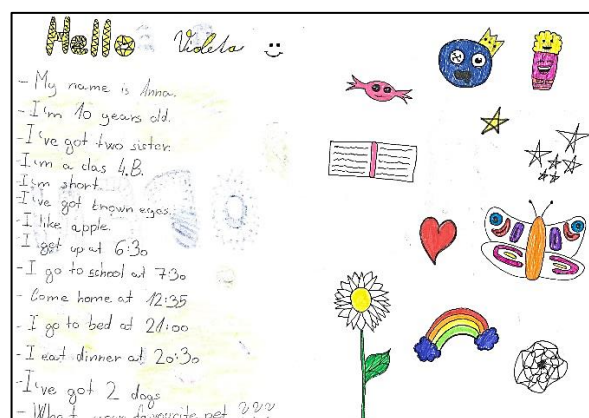 Hello Violeta
- My name is Anna.
- I'm 10 years old.
- I've got two sister.
- I'm a clas 4.B.
I'm short.
- I've got brown eges.
I like apple.
I get up at 6:30
- I go to school at 7:30
- Come home at 12:35
- I go to bed at 21:00
- I eat dinner at 20:30
- I've got 2 dogs
- What your favourite pet ???